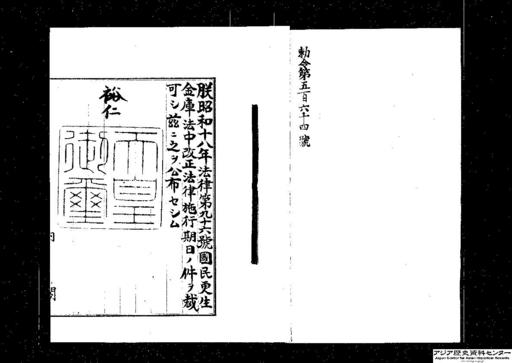 勅令第五百六十四號
朕昭和十八年法律第九十六號國民更生
金庫法中改正法律施行期日ノ件ヲ裁
可シ茲ニ之ヲ公布セシム
裕仁
天皇
御璽
内
閣
アジア歴史資料センター
Japan Center for Asian Historical Records